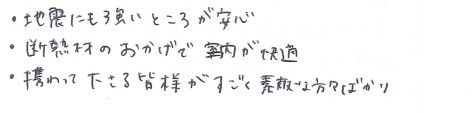 ・地震にも強いところが安心
・断熱材のおかげで室内が快適
・携わって下さる皆様がすごく素敵な方々ばかり